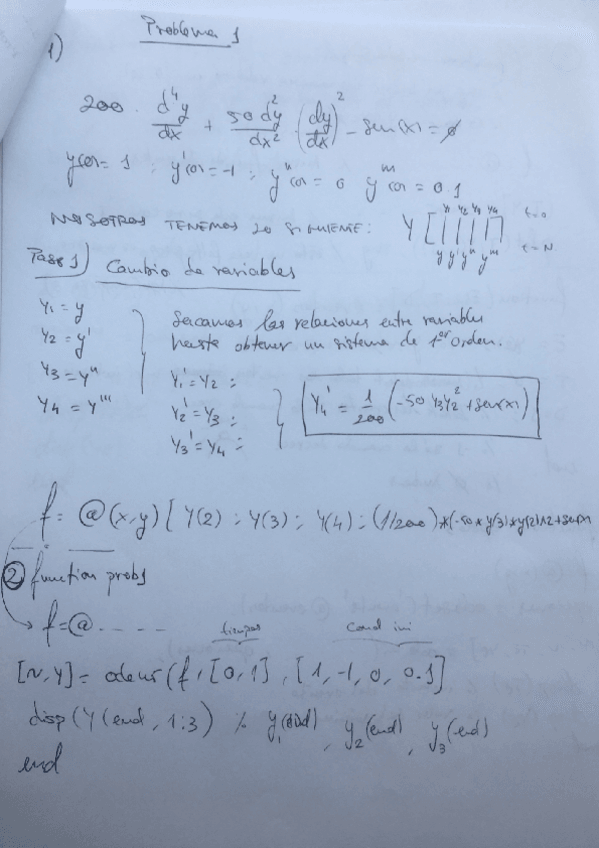 Problema 1
1)
200 · d⁴y/dx + 50 d²y/dx² · (dy/dx)² - sen(x) = 0
y(0) = 1 ; y'(0) = -1 ; y''(0) = 0 y'''(0) = 0.1
NOSOTROS TENEMOS LO SIGUIENTE: Y [ y1 y2 y3 y4 ] t=0
y y' y'' y''' t=N
Paso 1) Cambio de variables
Y1 = y
Y2 = y'
Y3 = y''
Y4 = y'''
Sacamos las relaciones entre variables
hasta obtener un sistema de 1er orden.
Y1' = Y2 ;
Y2' = Y3 ;
Y3' = Y4 ;
Y4' = 1/200 (-50 Y3 Y2² + sen(x))
f = @(x,y) [ Y(2) ; Y(3) ; Y(4) ; (1/200)*(-50*y(3)*y(2)^2+sen(x
2 function prob1
f = @ - - - - -
tiempos Cond ini
[N,Y] = (f, [0,1], [1, -1, 0, 0.1]
disp (Y(end, 1:3) % y1(end), y2(end), y3(end)
end